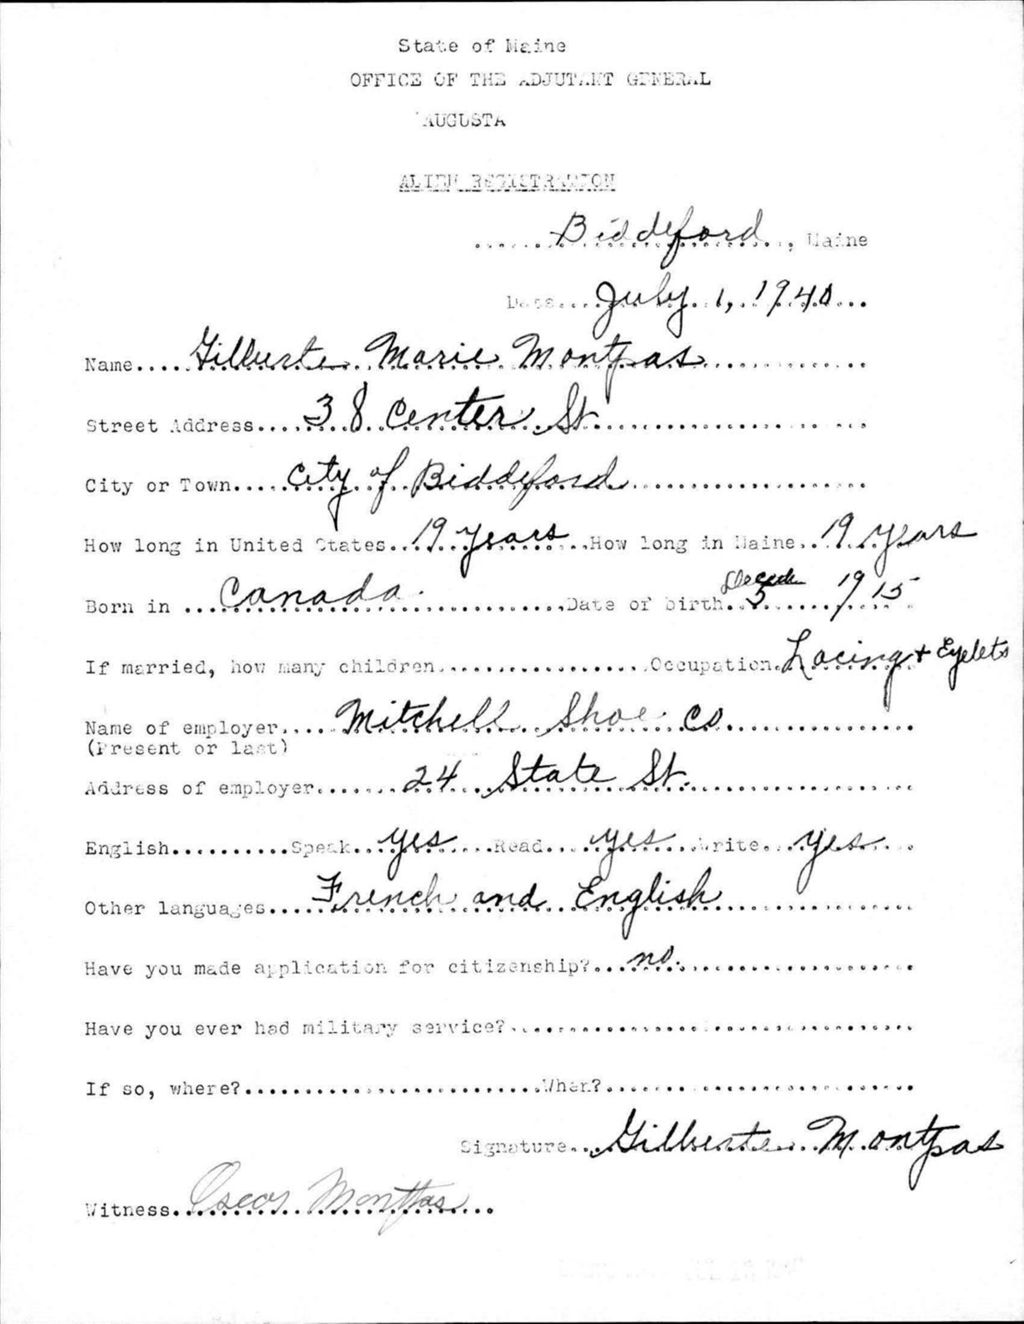 State of Maine
OFFICE OF THE ADJUTANT GENERAL
AUGUSTA
ALIEN REGISTRATION
Biddeford, Maine
Date July 1, 1940
Name Gilberte Marie Montpas
Street Address 38 Center St.
City or Town City of Biddeford
How long in United States 19 years How long in Maine 19 years
Born in Canada Date of birth 5 1915
If married, how many children Occupation Lacing + Eyelets
Name of employer Mitchell Shoe Co
(Present or last)
Address of employer 24 State St.
English Speak yes Read yes Write yes
Other languages French and English
Have you made application for citizenship? no.
Have you ever had military service?
If so, where? When?
Signature Gilberte Montpas
Witness Oscar Montpas